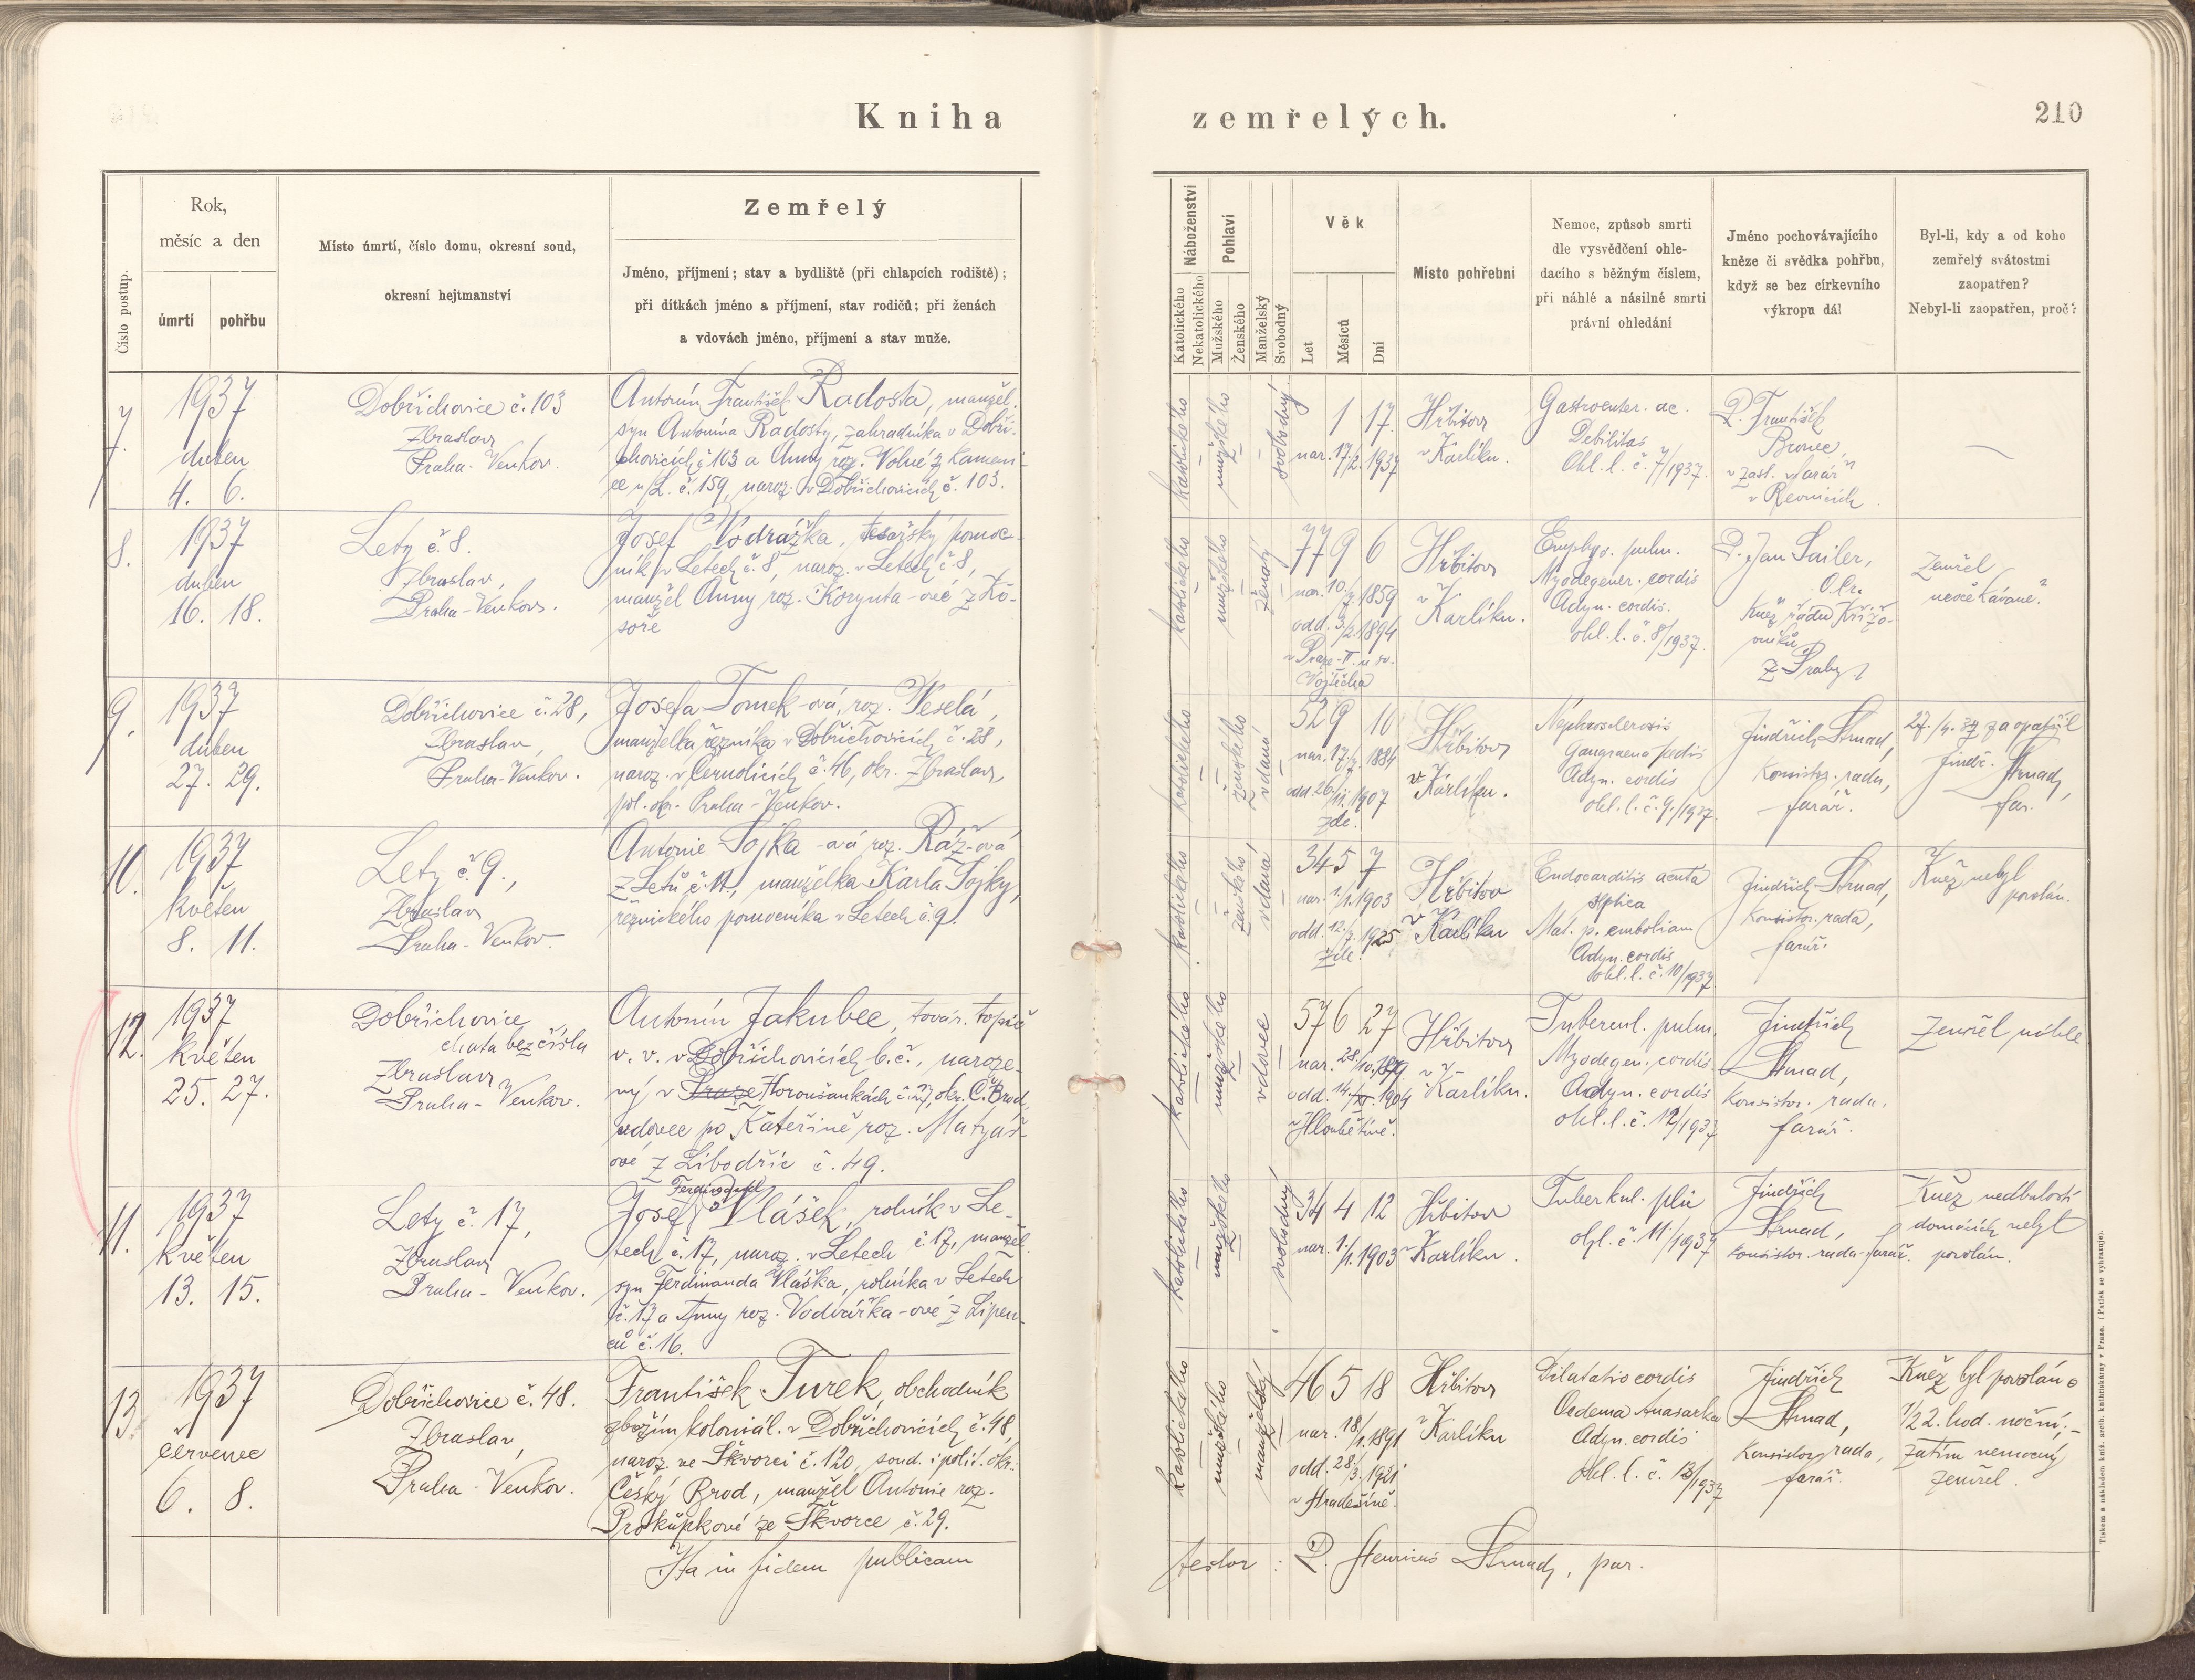 Kniha zemřelých.
210
Číslo postup.
Rok,
měsíc a den
úmrtí
pohřbu
Místo úmrtí, číslo domu, okresní soud,
okresní hejtmanství
Zemřelý
Jméno, příjmení; stav a bydliště (při chlapcích rodiště);
při dítkách jméno a příjmení, stav rodičů; při ženách
a vdovách jméno, příjmení a stav muže.
Náboženství
Katolického
Nekatolického
Pohlaví
Mužského
Ženského
Manželský
Svobodný
Věk
Let
Měsíců
Dní
Místo pohřební
Nemoc, způsob smrti
dle vysvědčení ohle-
dacího s běžným číslem,
při náhlé a násilné smrti
právní ohledání
Jméno pochovávajícího
kněze či svědka pohřbu,
když se bez církevního
výkropu dál
Byl-li, kdy a od koho
zemřelý svátostmi
zaopatřen?
Nebyl-li zaopatřen, proč?
7.
1937
duben
4. 6.
Dobřichovice č. 103
Zbraslav
Praha-Venkov.
Antonín František Radosta, manžel.
syn Antonína Radosty, zahradníka v Dobři-
chovicích č 103 a Anny roz. Volné z Kameni-
ce n/L. č. 159, naroz. v Dobřichovicích č. 103.
katolického
mužského
svobodný.
1 17.
nar. 17/2. 1937
Hřbitov
v Karlíku.
Gastroenter. ac.
Debilitas
Ohl. l. č. 7/1937.
P. František
v zast. farář
v Řevnicích
8.
1937
duben
16. 18.
Lety č. 8.
Zbraslav,
Praha-Venkov.
Josef Vodrážka, tesařský pomoc-
ník v Letech č. 8, naroz. v Letech č. 8,
manžel Anny roz. Korynta-ové z Ko-
soře
katolického
mužského
ženatý
77 9 6
nar. 10./7. 1859
odd. 3/2. 1894
v Praze-II. u sv.
Vojtěcha
Hřbitov
v
Karlíku.
Emphys. pulm.
Myodegener. cordis
Adyn. cordis.
ohl. l. č. 8/1937.
P. Jan Sailer,
kněz řádu Křižo-
vníků
z Prahy
Zemřel
neočekávaně.
9.
1937
duben
27. 29.
Dobřichovice č. 28,
Zbraslav,
Praha-Venkov.
Josefa Tomek-ová, roz. Veselá,
manželka řezníka v Dobřichovicích č. 28,
naroz. v Černolicích č. 46, okr. Zbraslav,
pol. okr. Praha-Venkov.
katolického
ženského
vdaná
52 9 10
nar. 17/7. 1884
odd. 26/11. 1907
zde.
Hřbitov
v Karlíku.
Nephrosclerosis
Gangraena pedis
Adyn. cordis
ohl. l. č. 9./1937.
Jindřich Strnad,
Konsistor. rada,
farář.
27./4. 37 zaopatřil
Jindř. Strnad,
far.
10.
1937
květen
8. 11.
Lety č. 9.,
Zbraslav
Praha-Venkov.
Antonie Sojka-ová roz. Ráž-ová
z Letů č. 11., manželka Karla Sojky,
řeznického pomocníka v Letech č. 9.
katolického
ženského,
vdaná
34 5 7
nar. 1/1. 1903
odd. 12./7. 1925
zde.
Hřbitov
v Karlíku
Endocarditis acuta
septica
Mal. p. emboliam
Adyn. cordis
ohl. l. č. 10/1937.
Jindřich Strnad,
Konsistor. rada,
farář.
Kněz nebyl
povolán.
12.
1937
květen
25. 27.
Dobřichovice
chata bez čísla
Zbraslav
Praha-Venkov.
Antonín Jakubec, továr. topič
v. v. v Dobřichovicích b. č., naroze-
ný v Praze Horoušánkách č. 27, okr. Č. Brod,
vdovec po Kateřině roz. Matyáš-
ové z Libodřic č. 49.
katolického
mužského
vdovec
57 6 27
nar. 28./10. 1879
odd. 14./XI. 1904
v Hloubětíně.
Hřbitov
v Karlíku.
Tubercul. pulm.
Myodegen. cordis.
Adyn. cordis
ohl. l. č. 12/1937
Jindřich
Strnad,
Konsistor. rada.
farář.
Zemřel náhle
11.
1937
květen
13. 15.
Lety č. 17,
Zbraslav
Praha-Venkov.
Ferdinand
Josef Vlášek, rolník v Le-
tech č. 17, naroz. v Letech č. 17, manžel.
syn Ferdinanda Vláška, rolníka v Letech
č. 17 a Anny roz. Vodvářka-ové z Lipen-
ců č. 16.
katolického
mužského
svobodný
34 4 12
nar. 1./1. 1903
Hřbitov
v Karlíku.
Tuberkul. plic
ohl. č. 11/1937
Jindřich
Strnad,
konsistor. rada-farář.
Kněz nedbalostí
domácích nebyl
povolán.
13.
1937
červenec
6. 8.
Dobřichovice č. 48.
Zbraslav,
Praha-Venkov.
František Turek, obchodník
zbožím koloniál. v Dobřichovicích č. 48,
naroz. ve Škvorci č. 120, soud. i polit. okr.
Český Brod, manžel Antonie roz.
Prokůpkové ze Škvorce č. 29.
katolického
mužského
manželský
46 5 18
nar. 18/1. 1891
odd. 28/3. 1921
v Hradešíně.
Hřbitov
v Karlíku
Dilatatio cordis
Oedema Anasarka
Adyn. cordis
Ohl. l. č. 13/1937
Jindřich
Strnad,
Konsistor. rada,
farář.
Kněz byl povolán o
1/2 2. hod. noční; -
zatím nemocný
zemřel.
Ita in fidem publicam
testor : P. Henricus Strnad, par.
Tiskem a nákladem kníž. arcib. knihtiskárny v Praze. (Patisk se vyhrazuje).